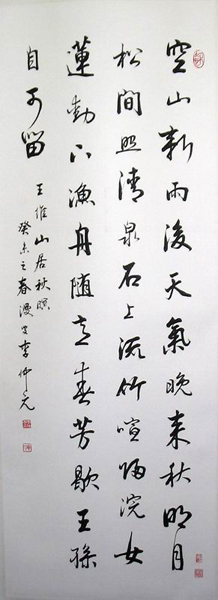 空山新雨後天氣晚来秋明月
松間照清泉石上流竹喧歸浣女
蓮動下漁舟随意春芳歇王孫
自可留
王維山居秋暝
癸未之春李仲元